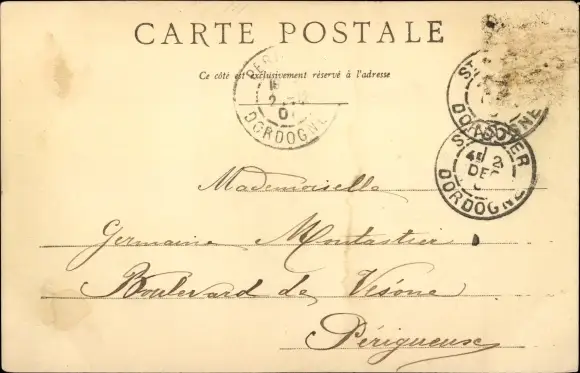 CARTE POSTALE
Ce côté est exclusivement réservé à l'adresse
DORDOGNE
ST
DORDOGNE
2
DEC
DORDOGNE
Mademoiselle
Germaine Montastier
Boulevard de Vésone
Périgueux